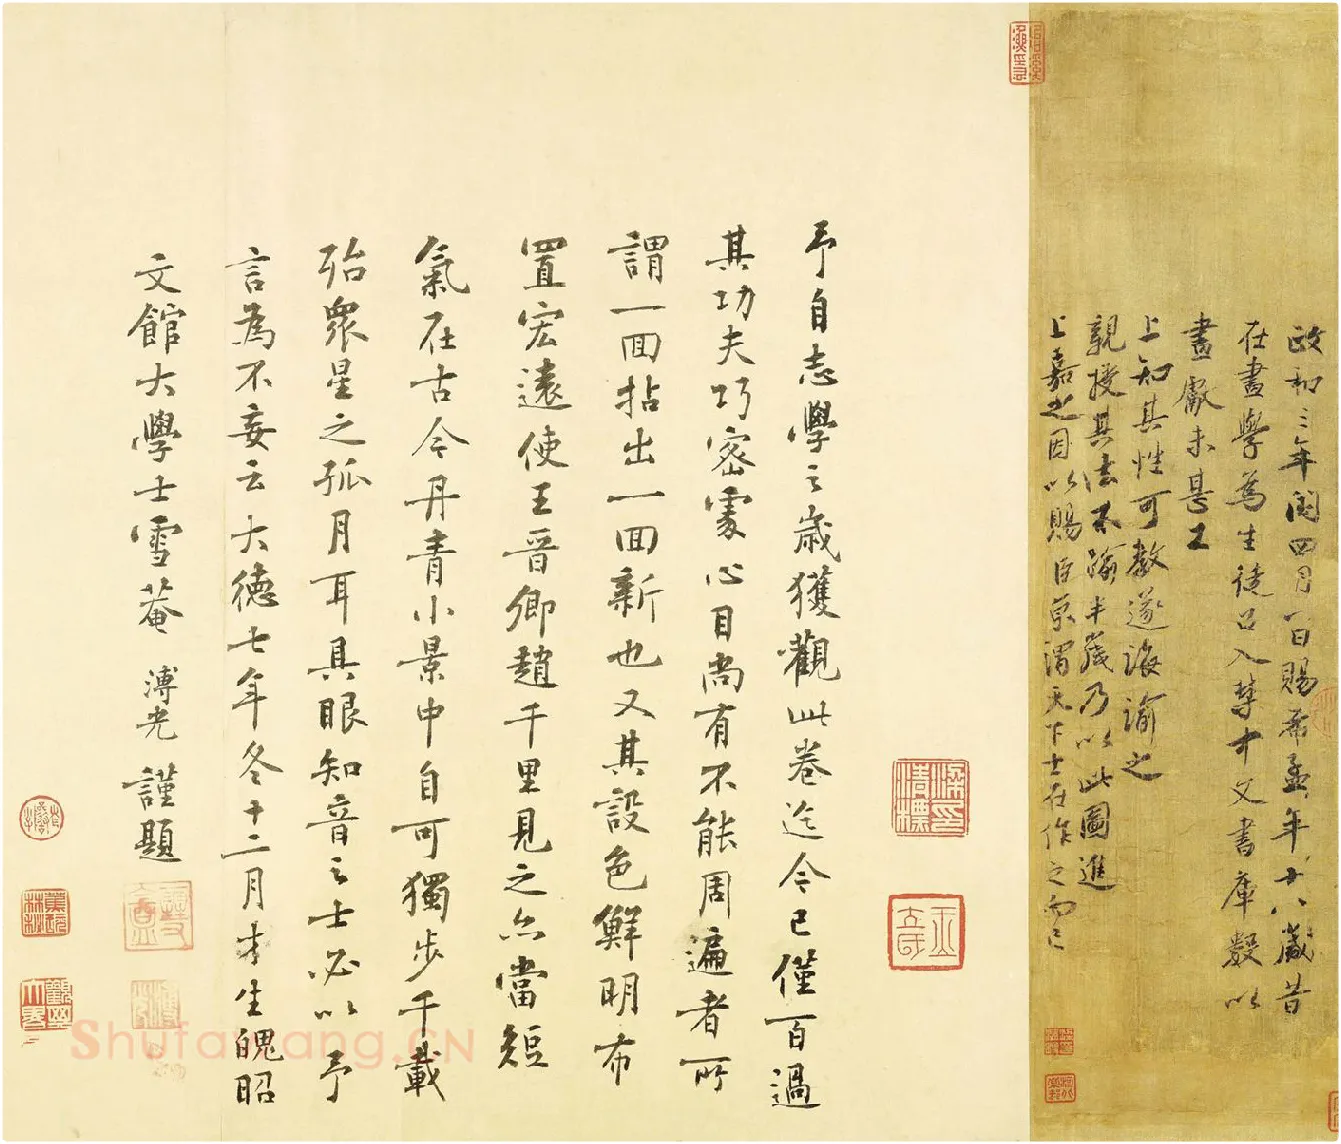 政和三年閏四月一日賜希孟年十八歲昔
在畫學為生徒召入禁中文書庫數以
畫獻未甚工
上知其性可教遂誨諭之
親授其法不踰半歲乃以此圖進
上嘉之因以賜臣京謂天下士在作之而已
予自志學之歲獲觀此卷迄今已僅百過
其功夫巧密處心目尚有不能周遍者所
謂一回拈出一回新也又其設色鮮明布
置宏遠使王晉卿趙千里見之亦當短
氣在古今丹青小景中自可獨步千載
殆衆星之孤月耳具眼知音之士必以予
言為不妄云大德七年冬十二月才生魄昭
文館大學士雪菴溥光謹題
梁清標印
Shufawang.CN